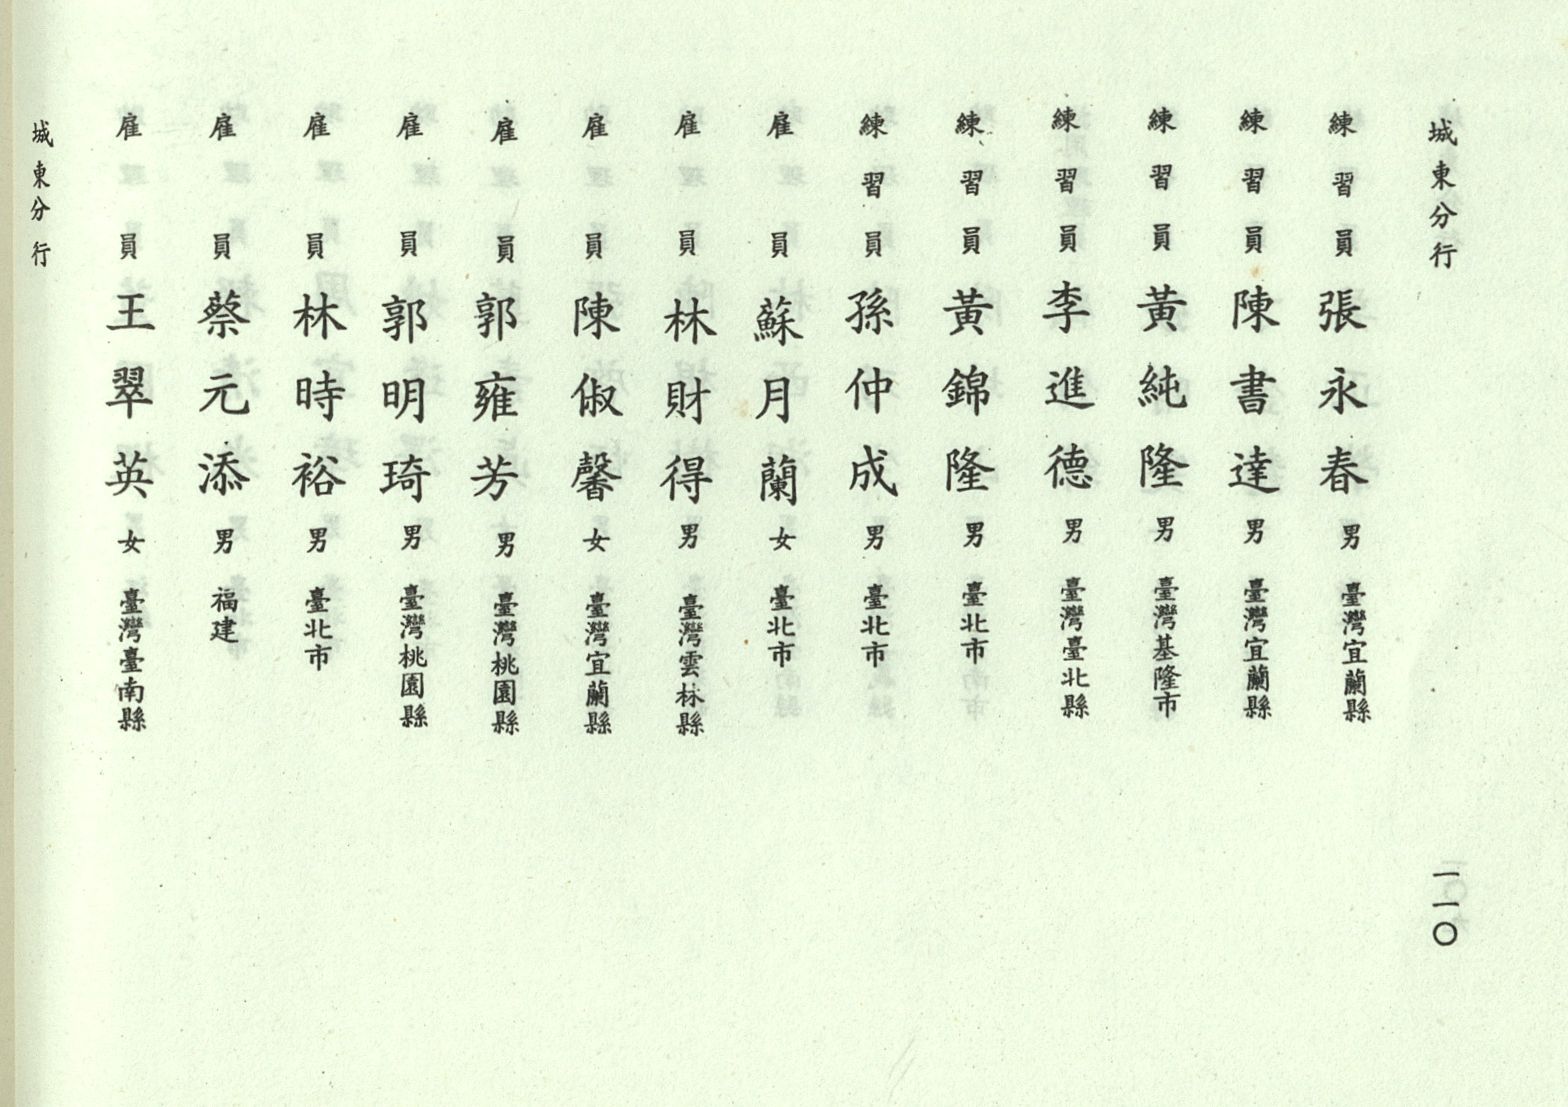 城東分行
一一〇
練習員 張永春 男 臺灣宜蘭縣
練習員 陳書達 男 臺灣宜蘭縣
練習員 黃純隆 男 臺灣基隆市
練習員 李進德 男 臺灣臺北縣
練習員 黃錦隆 男 臺北市
練習員 孫仲成 男 臺北市
雇員 蘇月蘭 女 臺北市
雇員 林財得 男 臺灣雲林縣
雇員 陳俶馨 女 臺灣宜蘭縣
雇員 郭雍芳 男 臺灣桃園縣
雇員 郭明琦 男 臺灣桃園縣
雇員 林時裕 男 臺北市
雇員 蔡元添 男 福建
雇員 王翠英 女 臺灣臺南縣
城東分行